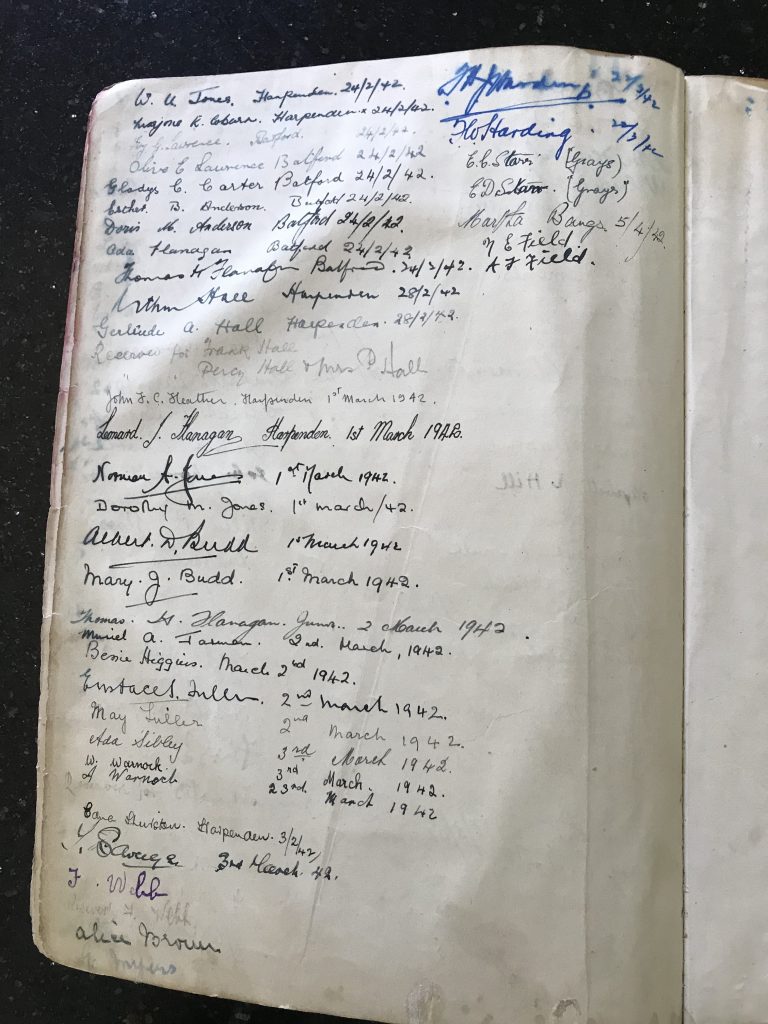 W. A. Jones. Harpenden. 24/2/42.
Marjorie R. Harpenden. 24/2/42.
G. Lawrence. Batford. 24/2/42.
Olive E Lawrence Batford 24/2/42
Gladys C. Carter Batford 24/2/42.
B. Anderson. Batford 24/2/42.
Doris M. Anderson Batford 24/2/42.
Ada Flanagan Batford 24/2/42
Thomas H Flanagan Batford. 24/2/42.
Arthur Hall Harpenden 28/2/42
Gertrude A. Hall Harpenden. 28/2/42.
Reserved for Frank Hall
" " Percy Hall & Mrs P Hall
John F. C. Heather. Harpenden 1st March 1942.
Leonard. J. Flanagan Harpenden. 1st March 1942.
Norman A. Jones. 1st March 1942.
Dorothy M. Jones. 1st March/42.
Albert. D. Budd 1st March 1942
Mary. J. Budd. 1st March 1942.
Thomas. H. Flanagan. Junr.. 2 March 1942.
Muriel A. Jarman. 2nd. March, 1942.
Bessie Higgins. March 2nd 1942.
Eustace S. Fuller. 2nd March 1942.
May Fuller 2nd March 1942.
Ada Sibley 3rd March 1942.
W. Warnock. 3rd March. 1942.
A Warnock 23rd March 1942
Harpenden. 3/2/42
Savage 3rd March. 42.
F. Webb
F. Webb
Alice Brown
Harding 22/3/42
Flo Harding. 22/3/42
E.C. Starr (Grays)
E D Starr. (Grays)
Martha Bangs. 5/4/42.
N E Field
A F Field.